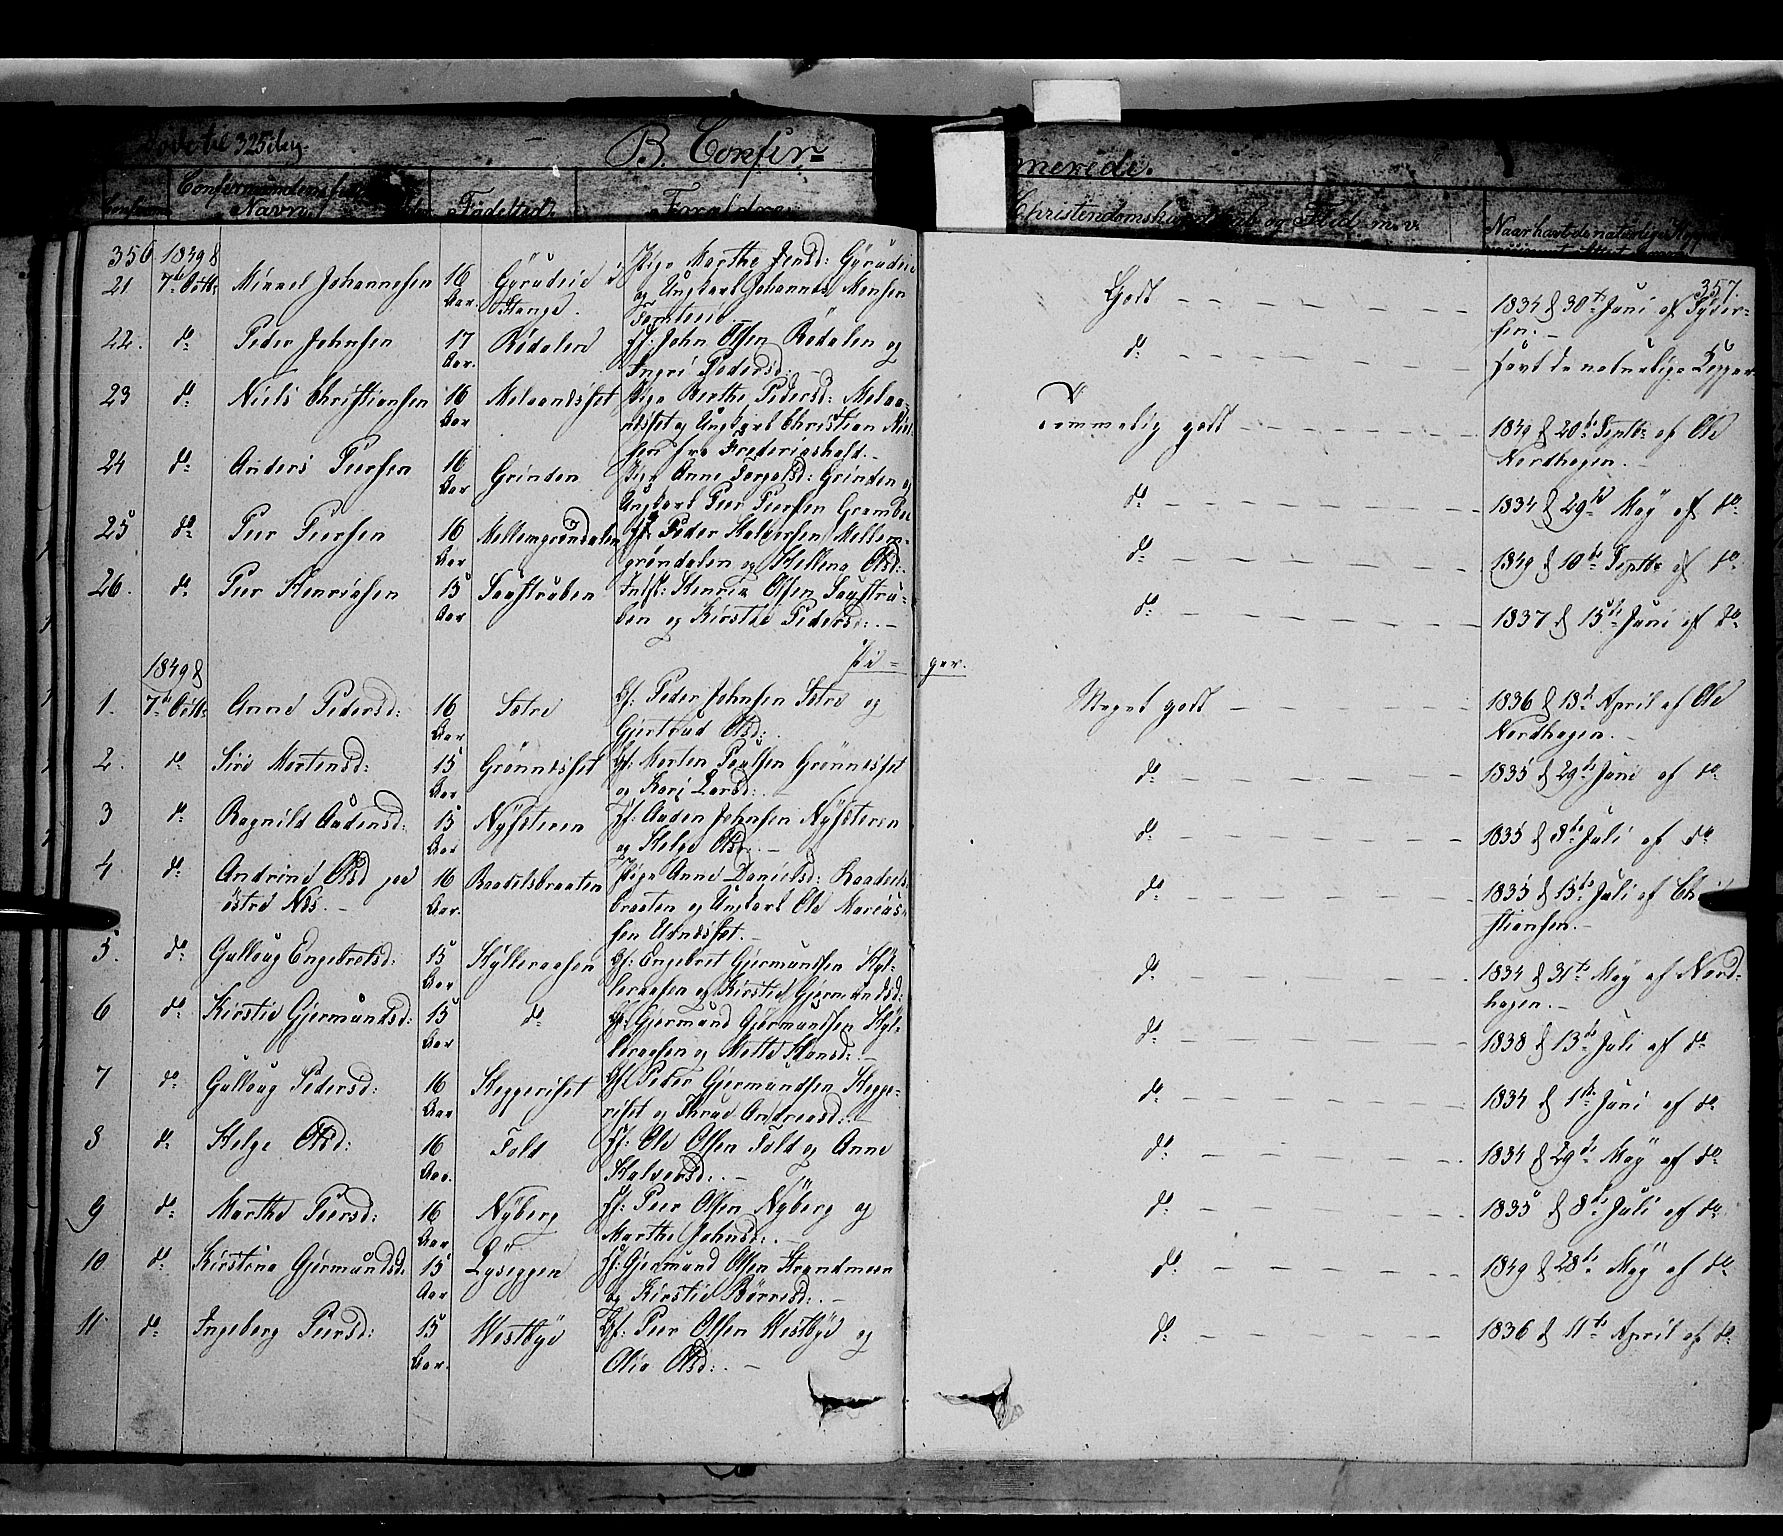 325
B. Confir=
merede.
Navn.
Fødested.
Forældre.
Christendomskundskab og Flid m.v.
356 1849 d
357.
21 7de Octbr Mikael Johannesen 16 Aar Gyrudeie Stange. Pige Marthe Jensd: Gyrudeie og Ungkarl Johannes Monsen Godt 1834 d 30te Juni af
22. do Peder Johnsen 17 Aar. Rødalen Gf: John Olsen Rødalen og Ingri Pedersd: do havt de naturlige Kopper
23 do Niels Christiansen 16 Aar Melaandsset Pige Berthe Pedersd: Melaandsset og Ungkarl Christian fra Frederigshald. Temmelig godt 1849 d 20de Septbr af Ole Nordhagen.
24 do Anders Peersen 16 Aar Grinden Pige Anne Torgalsd: Grinden og Ungkarl Peer Peersen do 1834 d 29de May af do
25 do Peer Peersen 16 Aar Mellemgrøndalen Gf: Peder Halvorsen Mellemgrøndalen og Hellena Olsd: do 1849 d 10de Septbr af do
26. do Peer Henriksen 15 Aar Saastruben Inds: Henrik Olsen Saastruben og Kirstie Pedersd: do 1837 d 15de Juni af do
1849 d
Pi = ger.
1. 7de Octbr Anne Pedersd: 16 Aar Sætre Gf: Peder Johnsen Sætre og Gjertrud Olsd: Meget godt 1836 d 13de April af Ole Nordhagen.
2. do Siri Mortensd: 15 Aar Grønnesset Gf: Morten Paulsen Grønnesset og Kari Larsd: do 1835 d 29de Juni af do
3 do Ragnild Audensd: 15 Aar Nysæteren Gf: Auden Johnsen Nysæteren og Helge Olsd: do 1835 d 8de Juli af do
4. do Andrine Olsd paa østre Næs. 16 Aar. Baadelsbraaten Pige Anne Danielsd: Baadelsbraaten og Ungkarl Ole Mariussen do 1835 d 15de Juli af Christiansen.
5. do Gulloug Engebretsd: 15 Aar Hylleraasen Gf: Engebret Gjermundsen Hylleraasen og Kirstie Gjermundsd: do 1834 d 31te May af Nordhagen.
6 do Kirstie Gjermundsd: 15 Aar do Gf: Gjermund Gjermundsen Hylleraasen og Mette Hansd: do 1838 d 13de Juli af do
7 do Gulloug Pedersd: 16 Aar Skjeggeriset Gf: Peder Gjermundsen og Andreasd: do 1834 d 1ste Juni af do
8 do Helge Olsd: 16 Aar. Fold Gf: Ole Olsen Fold og Anne Halvorsd: do 1834 d 29de May af do
9 do Marthe Peersd: 16 Aar Nyberg Gf: Peer Olsen Nyberg og Marthe Johnsd: do 1835 d 8de Juli af do
10 do Kirstine Gjermundsd: 15 Aar Lyseggen Gf: Gjermund Olsen Strandmoen og Kirstie Børresd: do 1849 d 28de May af do
11 do Ingeborg Peersd: 15 Aar. Westbye Gf: Peer Olsen Westbye og Olia Olsd: do 1836 d 11te April af do